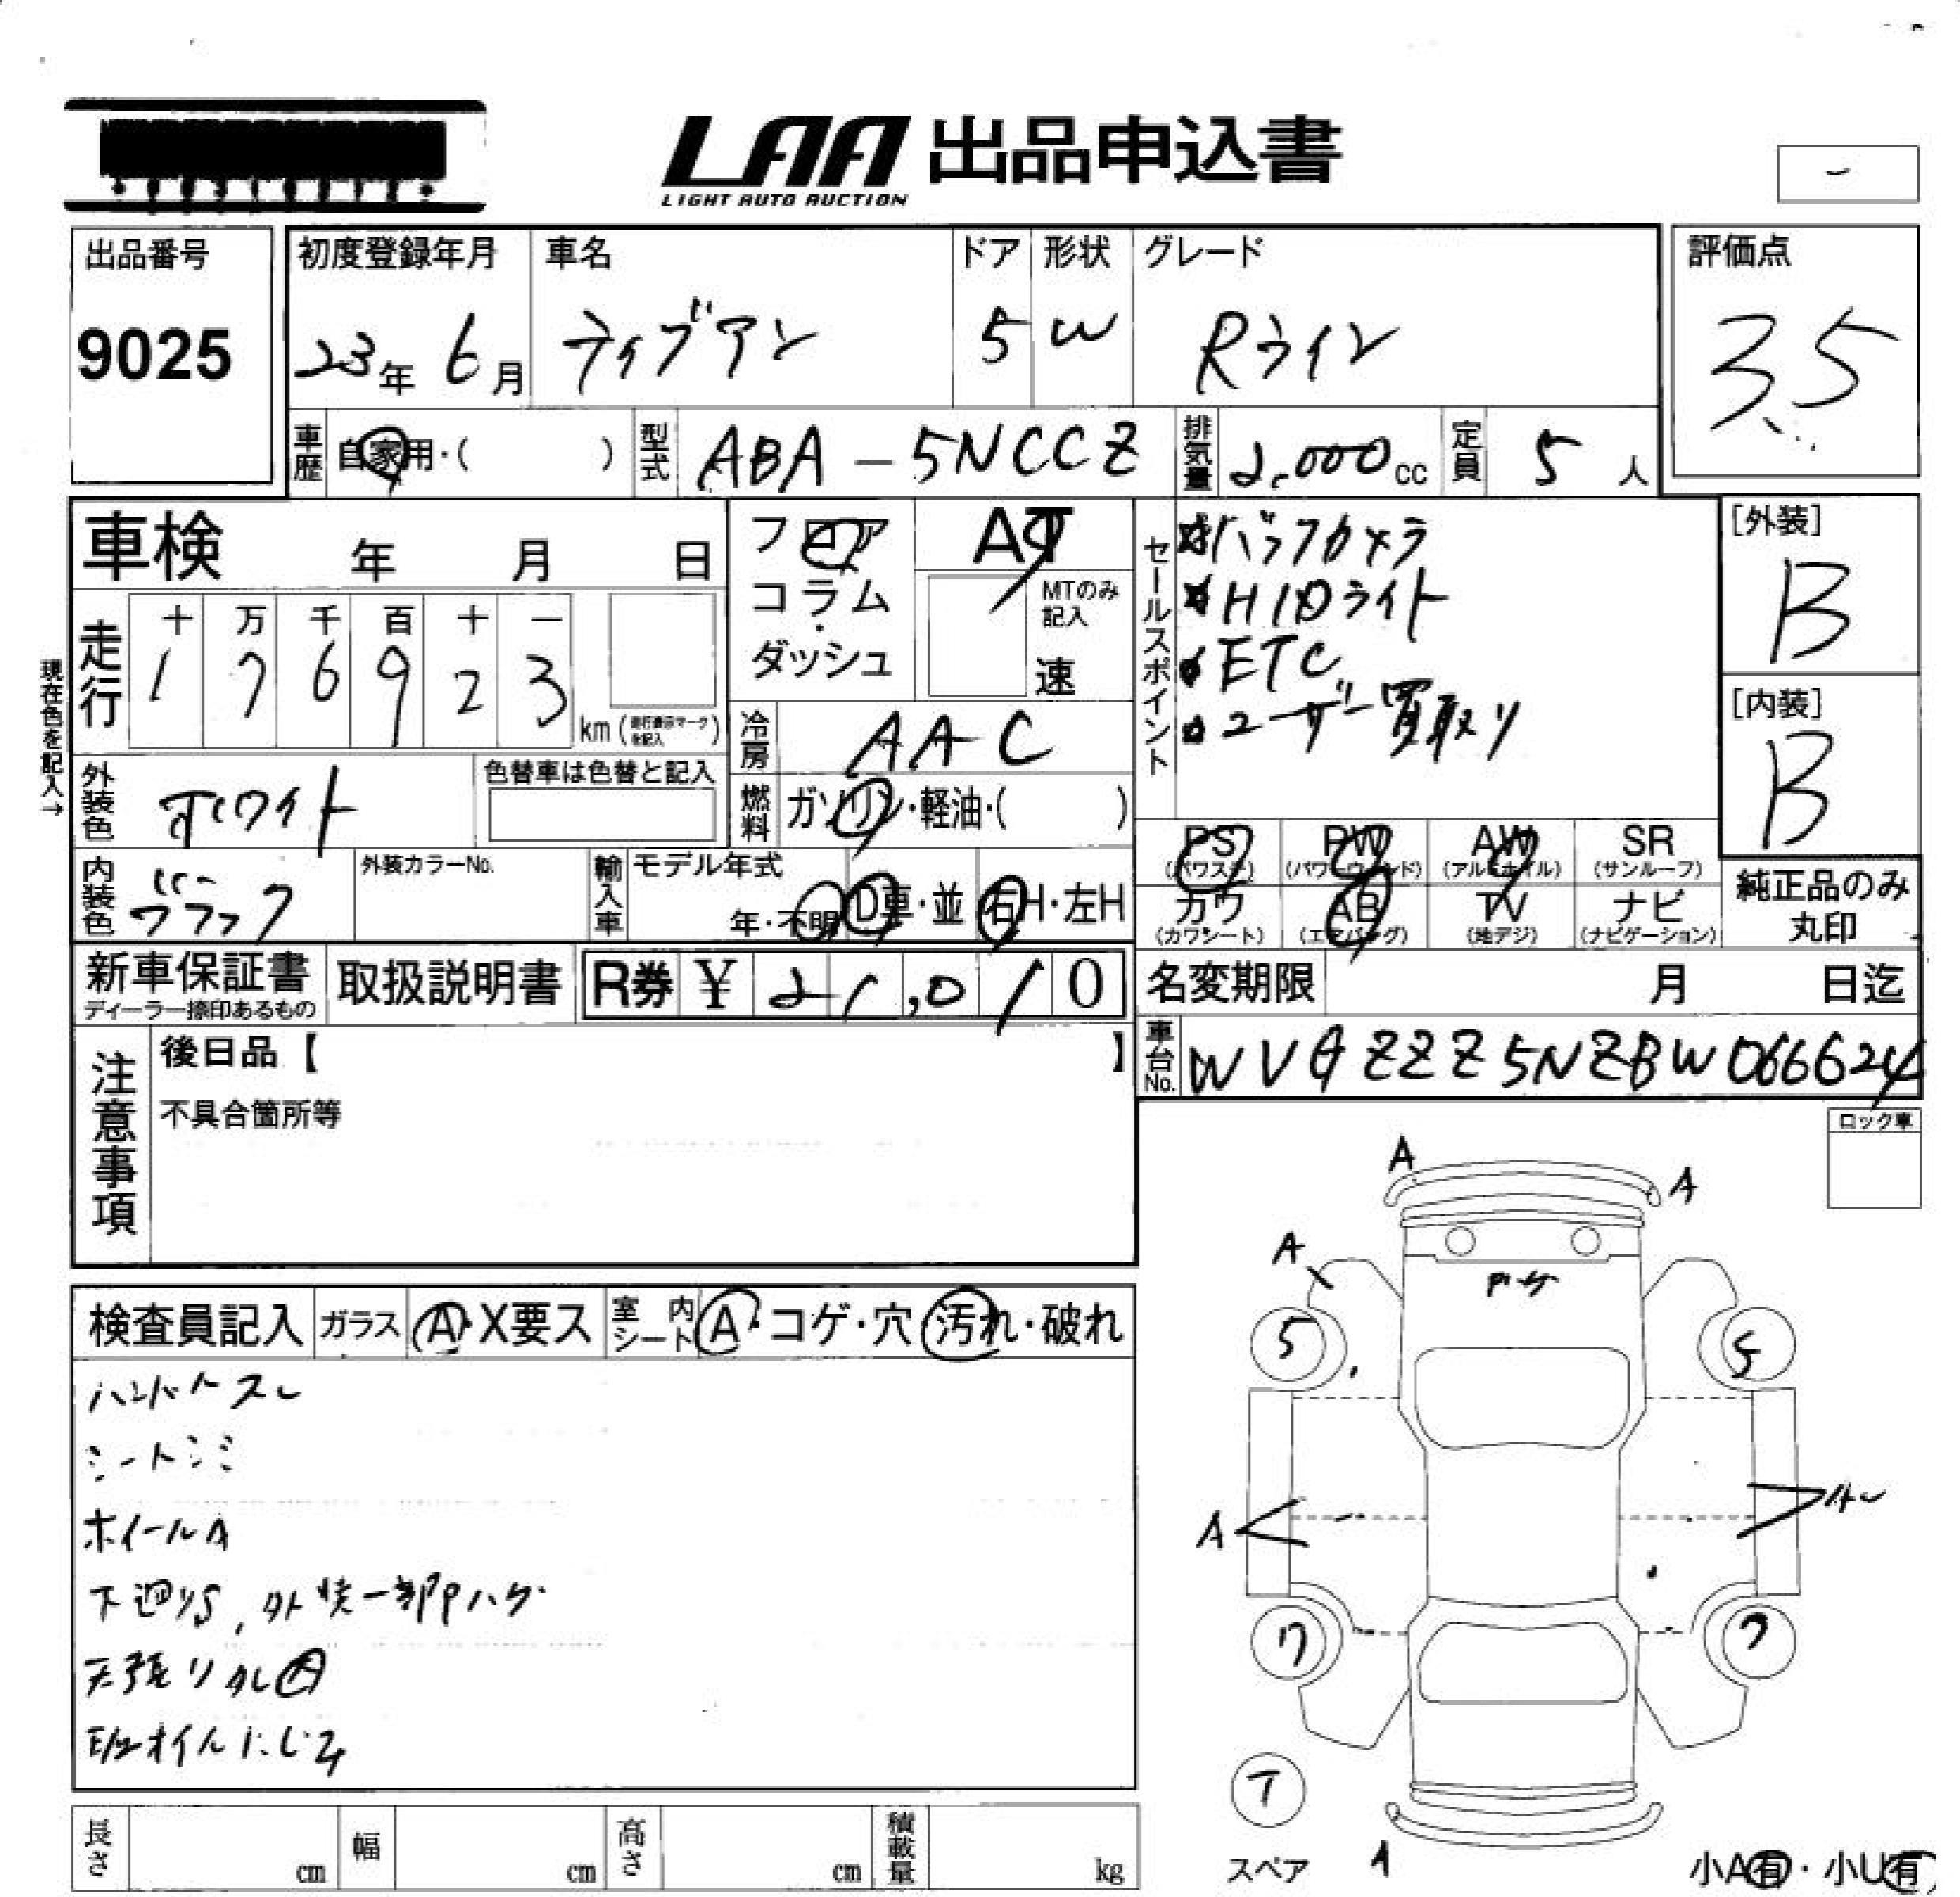 LAA 出品申込書
LIGHT AUTO AUCTION
出品番号
9025
初度登録年月
23年 6月
車名
ティグアン
ドア
5
形状
W
グレード
Rライン
評価点
3.5
車歴
自家用・( )
型式
ABA-5NCCZ
排気量
2,000cc
定員
5人
車検 年 月 日
フロア
コラム・
ダッシュ
AT
MTのみ記入
速
セールスポイント
バックカメラ
HIDライト
ETC
ユーザー買取り
[外装]
B
[内装]
B
現在色を記入→
走行
十 万 千 百 十 一
1 7 6 9 2 3
km
冷房
AAC
外装色
ホワイト
色替車は色替と記入
燃料
ガソリン・軽油・( )
内装色
ブラック
外装カラーNo.
輸入車
モデル年式
年・不明
D車・並
右H・左H
PS
(パワステ)
PW
(パワーウィンド)
AW
(アルミホイル)
SR
(サンルーフ)
カワ
(カワシート)
AB
(エアバッグ)
TV
(地デジ)
ナビ
(ナビゲーション)
純正品のみ
丸印
新車保証書
ディーラー捺印あるもの
取扱説明書
R券 ¥ 21,010
名変期限 月 日迄
車台No.
WVGZZZ5NZBW066624
注意事項
後日品【 】
不具合箇所等
ロック車
検査員記入
ガラス
A・X要ス
室内シート
A・コゲ・穴・汚れ・破れ
ハンドルスレ
シートシミ
ホイールA
下廻りS、外装一部Pハゲ
天張りタレ大
E/gオイルにじみ
A
A
A
Pハゲ
5
5
A
スレ
7
7
T
スペア
A
小A有・小U有
長さ cm
幅 cm
高さ cm
積載量 kg